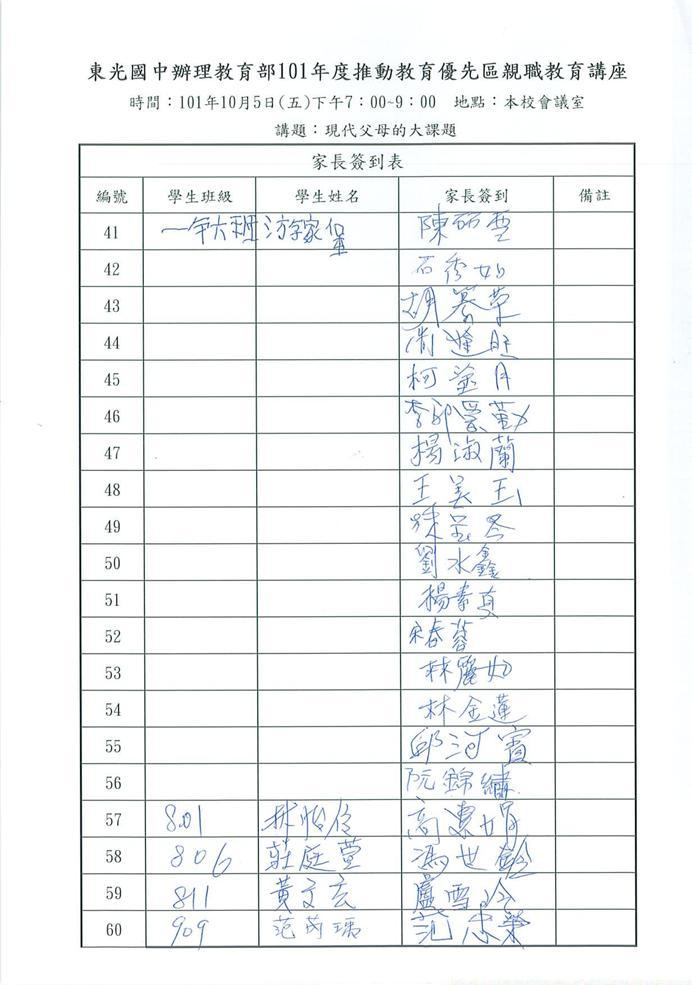 東光國中辦理教育部101年度推動教育優先區親職教育講座
時間：101年10月5日(五)下午7：00~9：00 地點：本校會議室
講題：現代父母的大課題
家長簽到表
編號 學生班級 學生姓名 家長簽到 備註
41 一年六班 游家 陳
42 石秀如
43 胡
44
45 柯 月
46 李邱
47 楊淑蘭
48 王美玉
49
50 劉水鑫
51 楊素真
52 宋春蓉
53 林麗如
54 林金蓮
55 邱河寶
56 阮錦繡
57 801 林怡伶 高 娟
58 806 莊庭萱 馮世
59 811 黃文玄 盧雪
60 909 范芮瑀 范忠榮